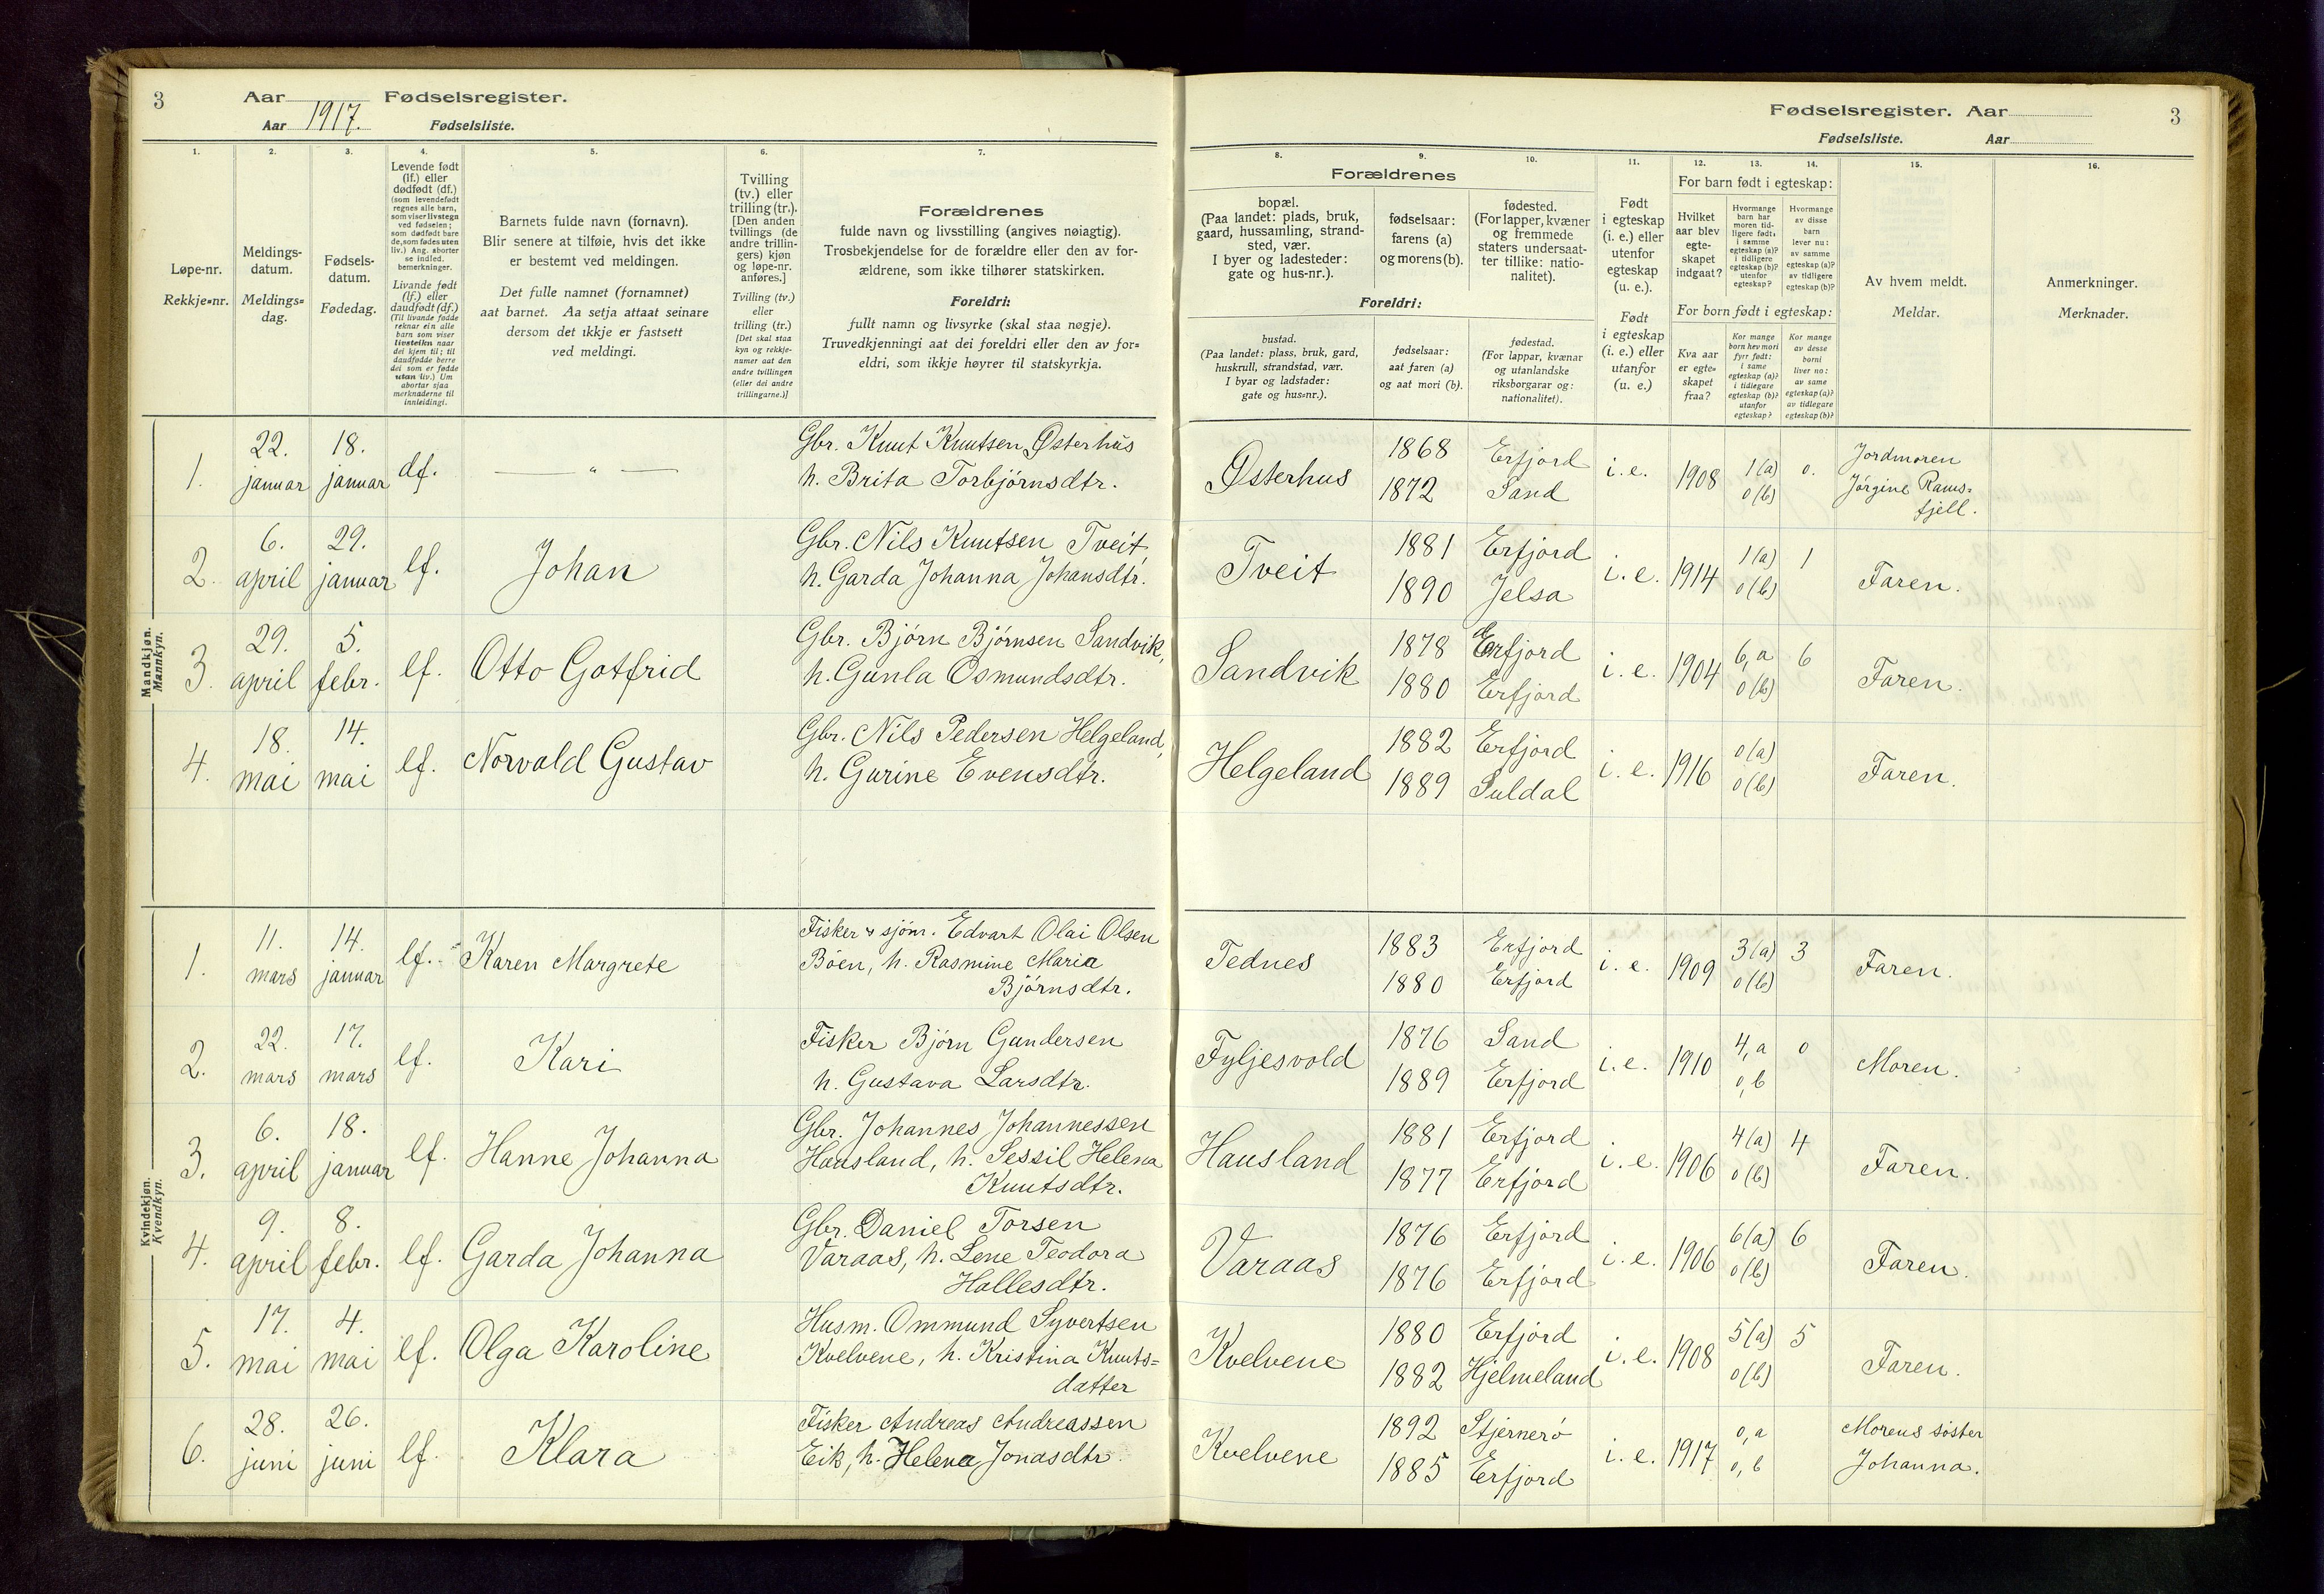 3
Aar
Fødselsregister.
Aar 1917.
Fødselsliste.
1.
2.
3.
4.
5.
6.
7.
Løpe-nr.
Rekkje=nr.
Meldings-
datum.
Meldings=
dag.
Fødsels-
datum.
Fødedag.
Levende født
(lf.) eller
dødfødt (df.)
(som levendefødt
regnes alle barn,
som viser livstegn
ved fødselen;
som dødfødt bare
de, som fødes uten
liv.) Ang. aborter
se indled.
bemerkninger.
Livande født
(lf.) eller
daudfødt (df.)
(Til livande fødde
reknar ein alle
barn som viser
livsteikn naar
dei kjem til; til
daudfødde berre
dei som er fødde
utan liv.) Um
abortar sjaa
merknaderne til
innleidingi.
Barnets fulde navn (fornavn).
Blir senere at tilføie, hvis det ikke
er bestemt ved meldingen.
Det fulle namnet (fornamnet)
aat barnet. Aa setja attaat seinare
dersom det ikkje er fastsett
ved meldingi.
Tvilling
(tv.) eller
trilling (tr.).
[Den anden
tvillings (de
andre trillin-
gers) kjøn
og løpe-nr.
anføres.]
Tvilling (tv.)
eller
trilling (tr.)
[Det skal staa
kyn og rekkje-
numer aat den
andre tvillingen
(eller dei andre
trillingarne.)]
Forældrenes
fulde navn og livsstilling (angives nøiagtig).
Trosbekjendelse for de forældre eller den av for-
ældrene, som ikke tilhører statskirken.
Foreldri:
fullt namn og livsyrke (skal staa nøgje).
Truvedkjenningi aat dei foreldri eller den av for=
eldri, som ikkje høyrer til statskyrkja.
Mandkjøn.
Mannkyn.
1.
22.
januar
18.
januar
df.
— „ —
Gbr. Knut Knutsen Østerhus
h. Brita Torbjørnsdtr.
2.
6.
april
29.
januar
lf.
Johan
Gbr. Nils Knutsen Tveit,
h. Garda Johanna Johansdtr.
3.
29.
april
5.
febr.
lf.
Otto Gotfrid
Gbr. Bjørn Bjørnsen Sandvik,
h. Gunla Osmundsdtr.
4.
18.
mai
14.
mai
lf.
Norvald Gustav
Gbr. Nils Pedersen Helgeland,
h. Gurine Evensdtr.
Kvindekjøn.
Kvendkyn.
1.
11.
mars
14.
januar
lf.
Karen Margrete
Fisker & sjøm. Edvart Olai Olsen
Bøen, h. Rasmine Maria
Bjørnsdtr.
2.
22.
mars
17.
mars
lf.
Kari
Fisker Bjørn Gundersen
h. Gustava Larsdtr.
3.
6.
april
18.
januar
lf.
Hanne Johanna
Gbr. Johannes Johannessen
Hausland, h. Sessil Helena
Knutsdtr.
4.
9.
april
8.
febr.
lf.
Garda Johanna
Gbr. Daniel Torsen
Varaas, h. Lene Teodora
Hallesdtr.
5.
17.
mai
4.
mai
lf.
Olga Karoline
Husm. Ommund Syvertsen
Kvelvene, h. Kristina Knuts=
datter
6.
28.
juni
26.
juni
lf.
Klara
Fisker Andreas Andreassen
Eik, h. Helena Jonasdtr
Fødselsregister. Aar
3
Fødselsliste.
Aar
8.
9.
10.
11.
12.
13.
14.
15.
16.
Forældrenes
bopæl.
(Paa landet: plads, bruk,
gaard, hussamling, strand-
sted, vær.
I byer og ladesteder:
gate og hus-nr.).
fødselsaar:
farens (a)
og morens (b).
fødested.
(For lapper, kvæner
og fremmede
staters undersaat-
ter tillike: natio-
nalitet).
Foreldri:
bustad.
(Paa landet: plass, bruk, gard,
huskrull, strandstad, vær.
I byar og ladstader:
gate og hus=nr.).
fødselsaar:
aat faren (a)
og aat mori (b).
fødestad.
(For lappar, kvænar
og utanlandske
riksborgarar og:
nationalitet).
Født
i egteskap
(i. e.) eller
utenfor
egteskap
(u. e.).
Født
i egteskap
(i. e.) eller
utanfor
(u. e.)
For barn født i egteskap:
Hvilket
aar blev
egte-
skapet
indgaat?
Hvormange
barn har
moren tid-
ligere født:
i samme
egteskap (a)?
i tidligere
egteskap (b)?
utenfor
egteskap?
Hvormange
av disse
barn
lever nu:
av samme
egteskap (a)?
av tidligere
egteskap (b)?
For born født i egteskap:
Kva aar
er egte=
skapet
fraa?
Kor mange
born hev mori
fyrr født:
i same
egteskap (a)?
i tidlegare
egteskap (b)?
utanfor
egteskap?
Kor mange
av desse
borni
liver no:
av same
egteskap (a)?
av tidlegare
egteskap (b)?
Av hvem meldt.
Meldar.
Anmerkninger.
Merknader.
Østerhus
1868
1872
Erfjord
Sand
i. e.
1908
1(a)
0(b)
0.
Jordmoren
Jørgine Rams=
fjell.
Tveit
1881
1890
Erfjord
Jelsa
i. e.
1914
1(a)
0(b)
1
Faren.
Sandvik
1878
1880
Erfjord
Erfjord
i. e.
1904
6, a
0(b)
6
Faren.
Helgeland
1882
1889
Erfjord
Suldal
i. e.
1916
0(a)
0(b)
Faren.
Tednes
1883
1880
Erfjord
Erfjord
i. e.
1909
3(a)
0(b)
3
Faren.
Fyljesvold
1876
1889
Sand
Erfjord
i. e.
1910
4, a
0, b
0
Moren.
Hausland
1881
1877
Erfjord
Erfjord
i. e.
1906
4(a)
0(b)
4
Faren.
Varaas
1876
1876
Erfjord
Erfjord
i. e.
1906
6(a)
0(b)
6
Faren.
Kvelvene
1880
1882
Erfjord
Hjelmeland
i. e.
1908
5(a)
0(b)
5
Faren.
Kvelvene
1892
1885
Stjernerø
Erfjord
i. e.
1917
0, a
0, b
Morens søster
Johanna.